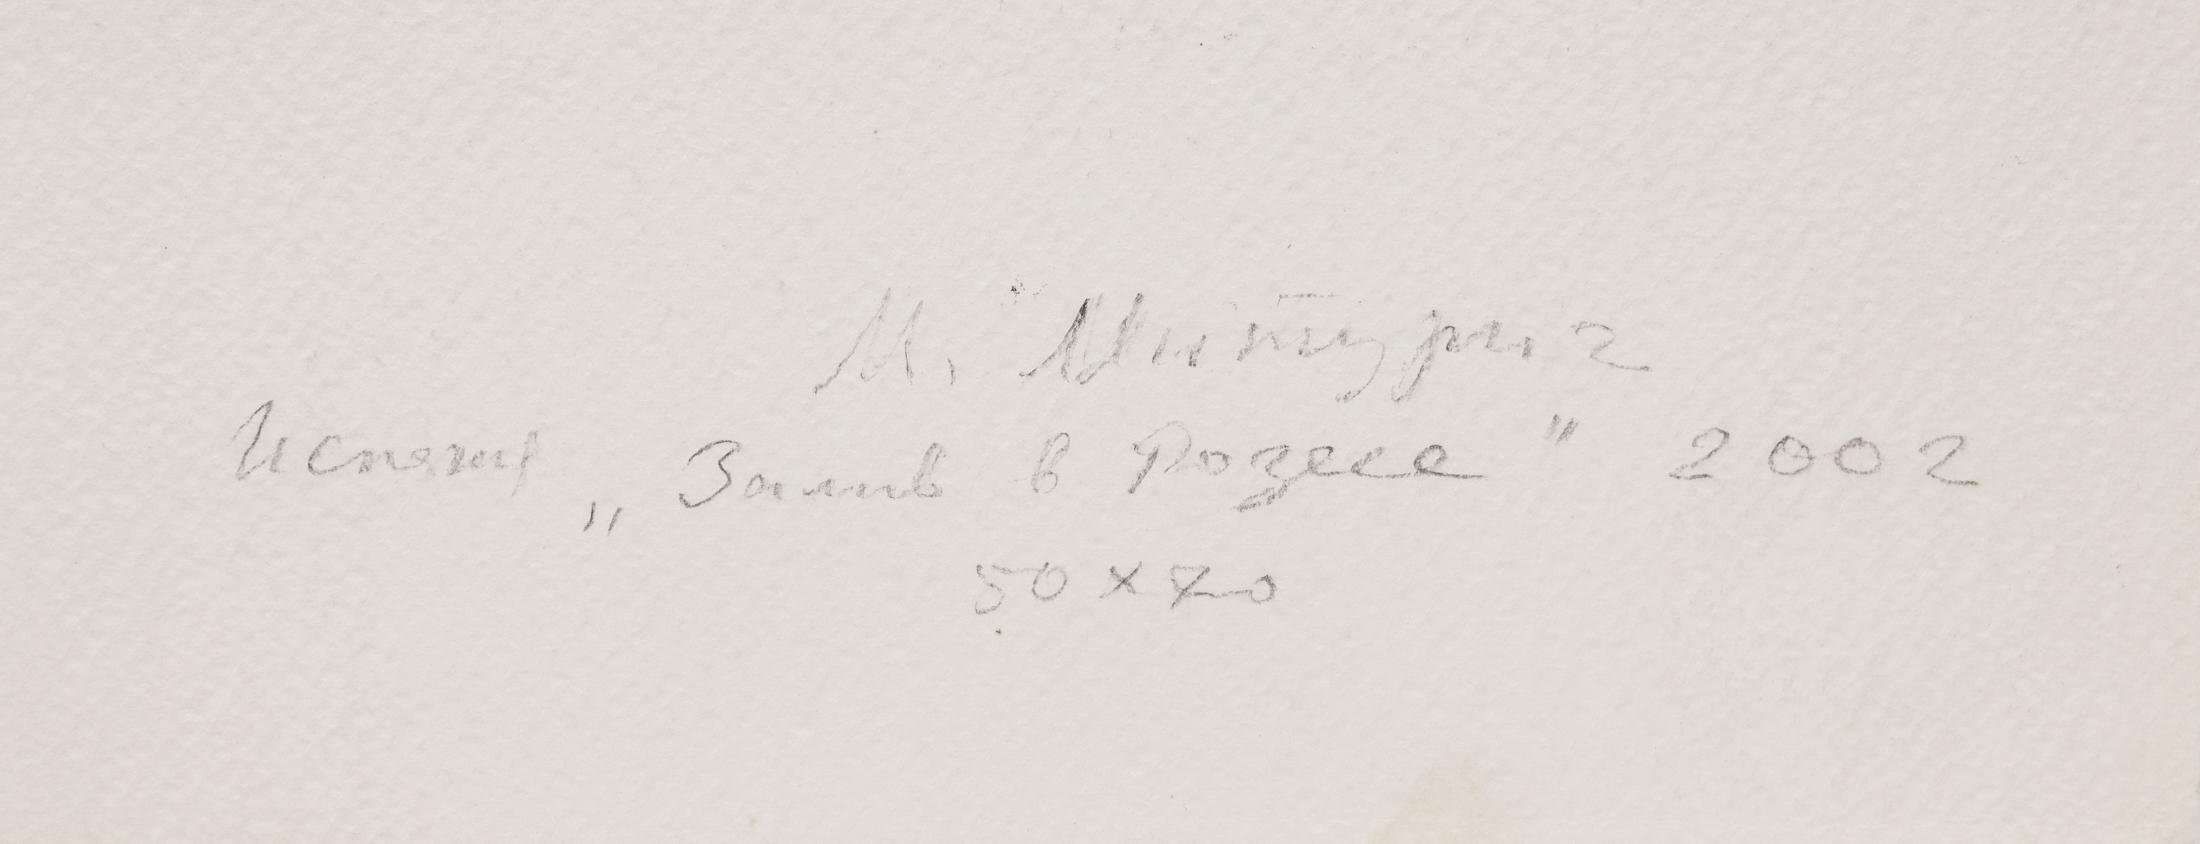 М. Митурич
Испания „Залив в Розесе" 2002
50 x 70